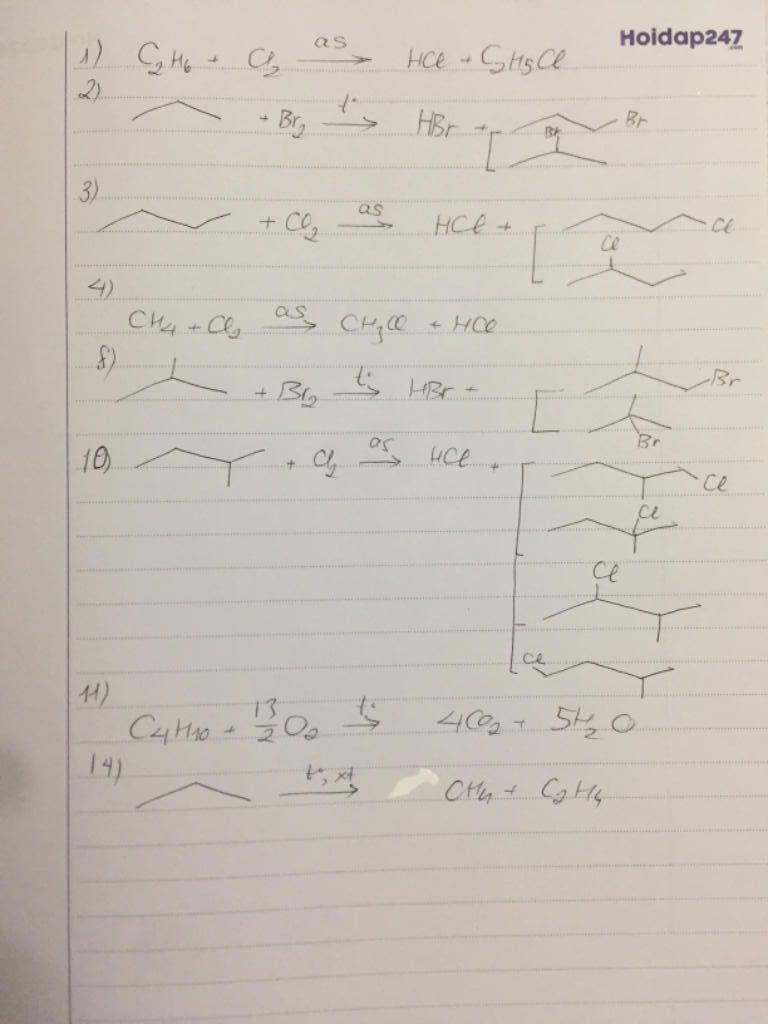 Hoidap247
.com
1) C₂H₆ + Cl₂ as→ HCl + C₂H₅Cl
2)
+ Br₂ t°→ HBr + Br
Br
3)
+ Cl₂ as→ HCl + Cl
Cl
4)
CH₄ + Cl₂ as→ CH₃Cl + HCl
8)
+ Br₂ t°→ HBr + Br
Br
10) + Cl₂ as→ HCl + Cl
Cl
Cl
Cl
11)
C₄H₁₀ + 13/2 O₂ t°→ 4CO₂ + 5H₂O
14)
t°, xt→ CH₄ + C₂H₄